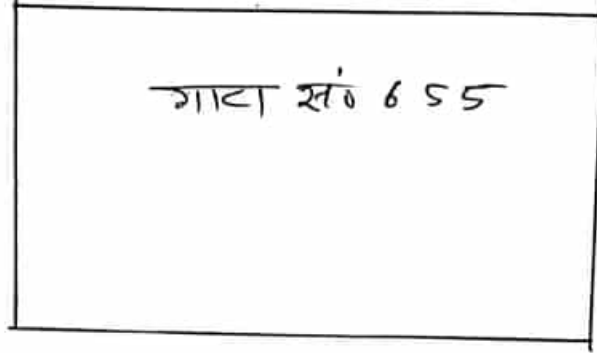 गाटा सं० 655